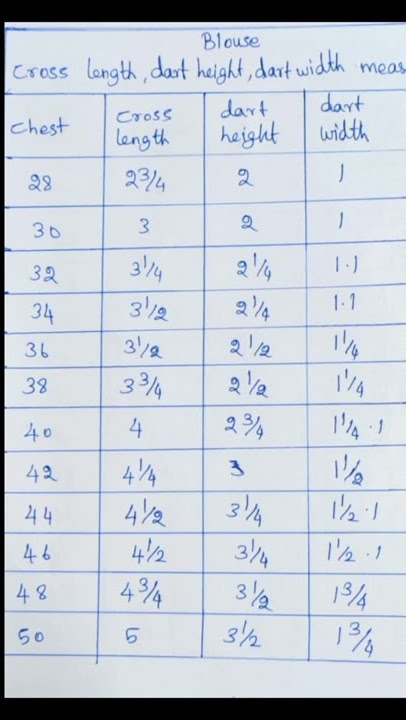 Blouse
Cross length, dart height, dart width meas
Chest Cross length dart height dart width
28 2 3/4 2 1
30 3 2 1
32 3 1/4 2 1/4 1.1
34 3 1/2 2 1/4 1.1
36 3 1/2 2 1/2 1 1/4
38 3 3/4 2 1/2 1 1/4
40 4 2 3/4 1 1/4 .1
42 4 1/4 3 1 1/2
44 4 1/2 3 1/4 1 1/2 .1
46 4 1/2 3 1/4 1 1/2 .1
48 4 3/4 3 1/2 1 3/4
50 5 3 1/2 1 3/4